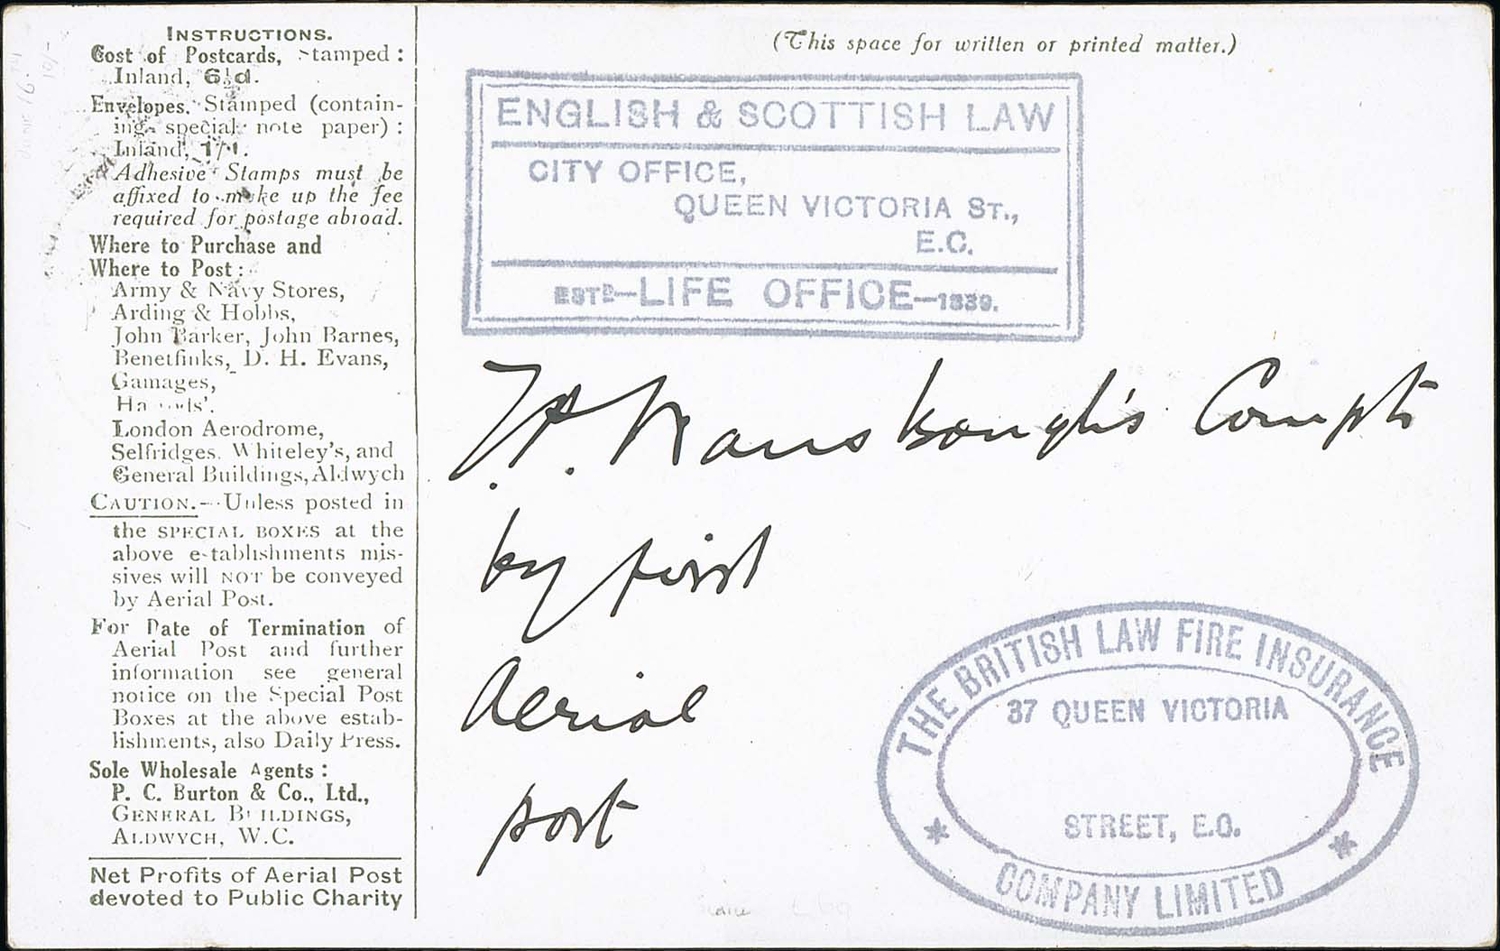 INSTRUCTIONS.
Cost of Postcards, Stamped :
Inland, 6½d.
Envelopes. Stamped (contain-
ing special note paper) :
Inland, 1/1.
Adhesive Stamps must be
affixed to make up the fee
required for postage abroad.
Where to Purchase and
Where to Post :
Army & Navy Stores,
Arding & Hobbs,
John Barker, John Barnes,
Benetfinks, D. H. Evans,
Gamages,
Harrods'.
London Aerodrome,
Selfridges. Whiteley's, and
General Buildings, Aldwych
CAUTION.—Unless posted in
the SPECIAL BOXES at the
above establishments mis-
sives will NOT be conveyed
by Aerial Post.
For Date of Termination of
Aerial Post and further
information see general
notice on the Special Post
Boxes at the above estab-
lishments, also Daily Press.
Sole Wholesale Agents :
P. C. Burton & Co., Ltd.,
GENERAL BUILDINGS,
ALDWYCH, W.C.
Net Profits of Aerial Post
devoted to Public Charity
(This space for written or printed matter.)
ENGLISH & SCOTTISH LAW
CITY OFFICE,
QUEEN VICTORIA ST.,
E.C.
ESTD—LIFE OFFICE—1839.
Compts
by first
Aerial
post
THE BRITISH LAW FIRE INSURANCE
37 QUEEN VICTORIA
STREET, E.C.
COMPANY LIMITED